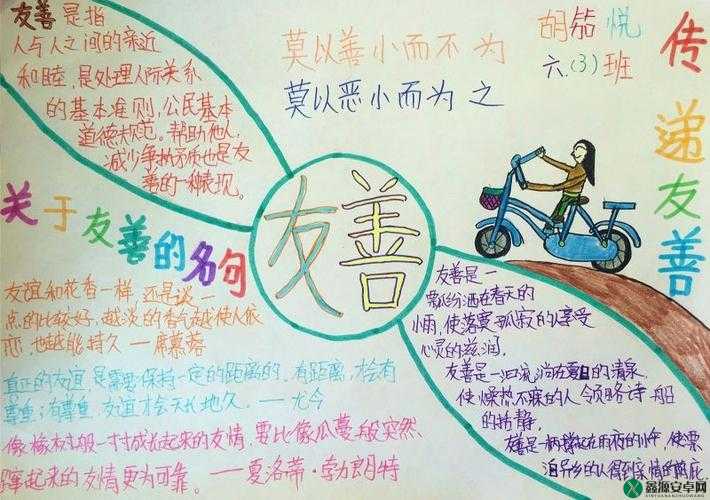 友善是指
人与人之间的亲近
和睦,是处理人际关系
的基本准则,公民基本
道德规范。帮助他人,
减少争执矛盾也是友
善的一种表现。
莫以善小而不为
莫以恶小而为之
胡 悦
六.(3)班
传递友善
友善
关于友善的名句
友谊和花香一样,还是淡一
点的比较好,越淡的香气越使人依
恋,也越能持久—席慕蓉
真正的友谊是需要保持一定的距离的,有距离,才会有
尊重;有尊重,友谊才会天长地久。——尤今
像橡树般一寸寸成长起来的友情,要比像瓜蔓般突然
蹿起来的友情更为可靠。——夏洛蒂·勃朗特
友善是一
飘洒在春天的
小雨,使落寞孤寂的人享受
心灵的滋润。
友善是一汩流淌在夏日的清泉,
使燥热不堪的人领略诗般
的恬静。
友善是一柄撑起在雨夜的小伞,使漂
泊异乡的人得到亲情的荫庇
鑫源安卓网
XINYUANANZHUOWANG